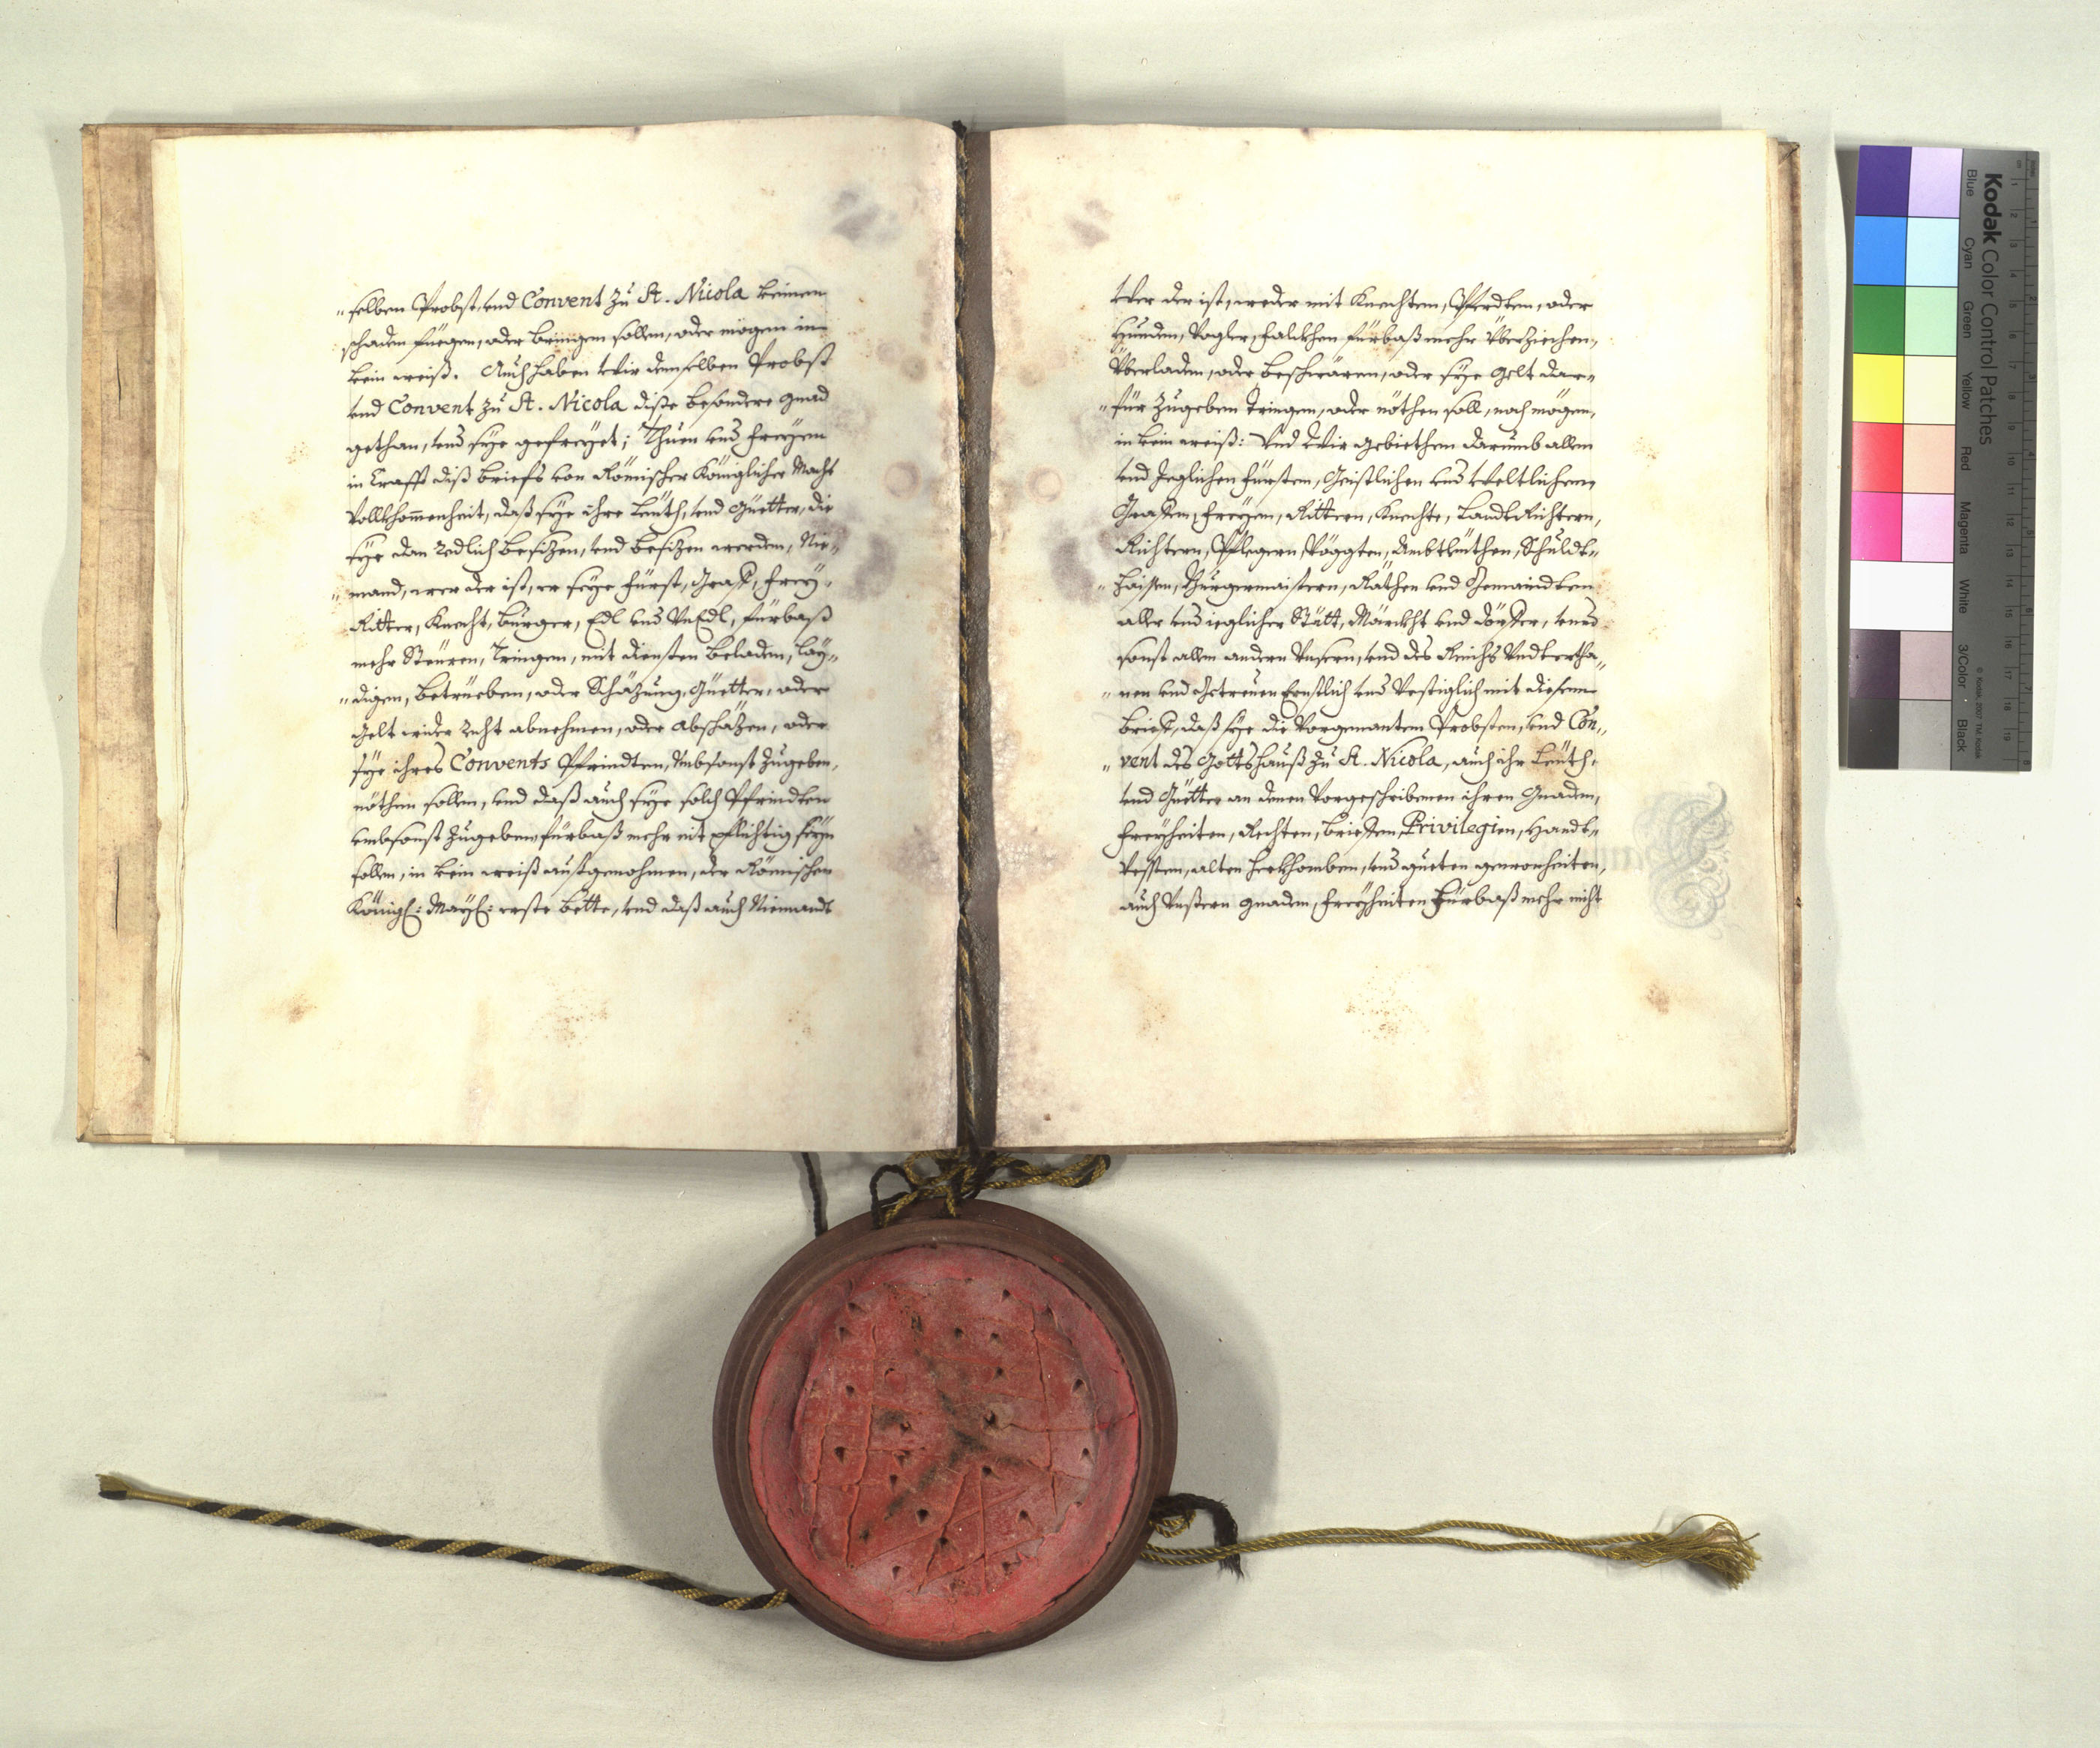 „selben Probst, und Convent zu St. Nicola keinen
schaden fuegen, oder bringen sollen, oder mögen in
kein weiß. Auch haben Wir demselben Probst
und Convent zu St. Nicola diße besondere gnad
gethan, und sye gefreyet; Thuen und freyen
in Crafft diß briefs von Römischer Königlicher Macht
Vollkhommenheit, daß sye ihre Leüth, und Güetter, die
sye dan redlich besizen, und besizen werden, Nie„
„mand, wer der ist, er seye Fürst, Graf, Frey,
Ritter, Knecht, Burger, Edl und VnEdl, fürbaß
mehr Steüren, Tringen, mit diensten beladen, Lay„
„digen, betrueben, oder Schäzung, Güetter, oder
Gelt wider recht abnehmen, oder abschäzen, oder
sye ihres Convents Pfriendten, Vmbsonst zugeben,
nöthen sollen, und daß auch sye solch Pfriendten
umbsonst zugeben fürbaß mehr nit pflichtig seyn
sollen, in kein weiß außgenohmen, der Römischen
Königl: Mayl: erste bette, und daß auch Niemandt
Wer der ist, weder mit Knechten, Pferdten, oder
Hunden, Vogler, Falckhen fürbaß mehr Überziehen,
Überladen, oder beschwären, oder sye Gelt dar„
„für zugeben Tringen, oder nöthen soll, noch mögen,
in kein weiß: Und Wir gebiethen darumb allen
und Jeglichen Fürsten, Geistlichen und Weltlichen,
Grafen, Freyen, Rittern, Knechte, LandtRichtern,
Richtern, Pflegern, Vöggten, Ambtleüthen, Schuldt„
„haissen, Burgermaistern, Räthen und Gemaindten
aller und ieglicher Stätt, Märckht und Dörfer, und
sonst allen andern Unsern, und des Reichs Undtertha„
„nen und Getreuen Ernstlich und Vestiglich mit diesem
brief, daß sye die Vorgenanten Probsten, und Con„
„vent des Gottshauß zu St. Nicola, auch ihr Leüth,
und Güetter an denen Vorgeschribenen ihren Gnaden,
Freyheiten, Rechten, briefen, Privilegien, Handt„
Vessten, alten Herkhomben, und gueten gewonheiten,
auch Unßern gnaden, Freyheiten Fürbaß mehr nicht
Kodak Color Control Patches
Blue Cyan Green Yellow Red Magenta White 3/Color Black
© Kodak, 2007 TM: Kodak